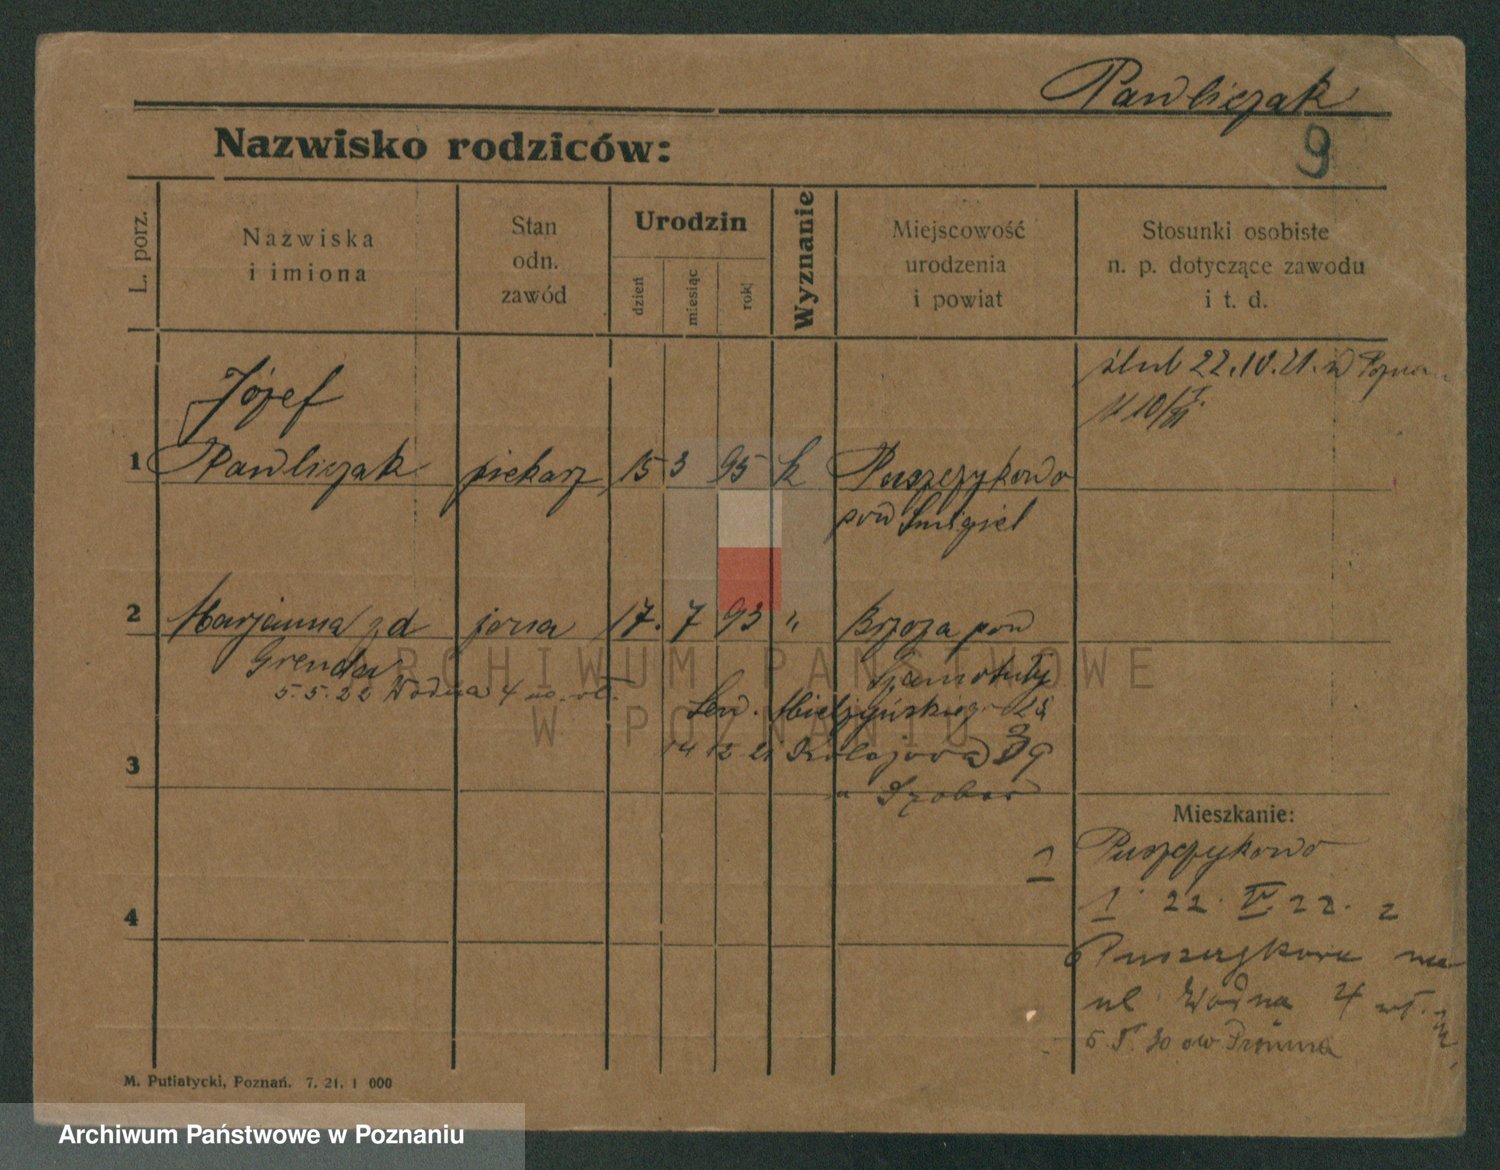 Pawliczak
9
Nazwisko rodziców:
L. porz.
Nazwiska
i imiona
Stan
odn.
zawód
Urodzin
dzień
miesiąc
rok
Wyznanie
Miejscowość
urodzenia
i powiat
Stosunki osobiste
n. p. dotyczące zawodu
i t. d.
ślub 22.10.21. w
Józef
1 Pawliczak piekarz 15 3 95 k Puszczykowo
pow Śmigiel
2 Marjanna zd żona 17. 7 93 " Brzoza pow
Grenda Szamotuły
5.5.22 Wodna 4
Mielżyńskiego
3 14 12 21 39
Mieszkanie:
1 Puszczykowo
1 22. IV. 22. z
4 Puszczykowa na
ul Wodna 4
M. Putiatycki, Poznań. 7. 21. 1 000
ARCHIWUM PAŃSTWOWE
W POZNANIU
Archiwum Państwowe w Poznaniu